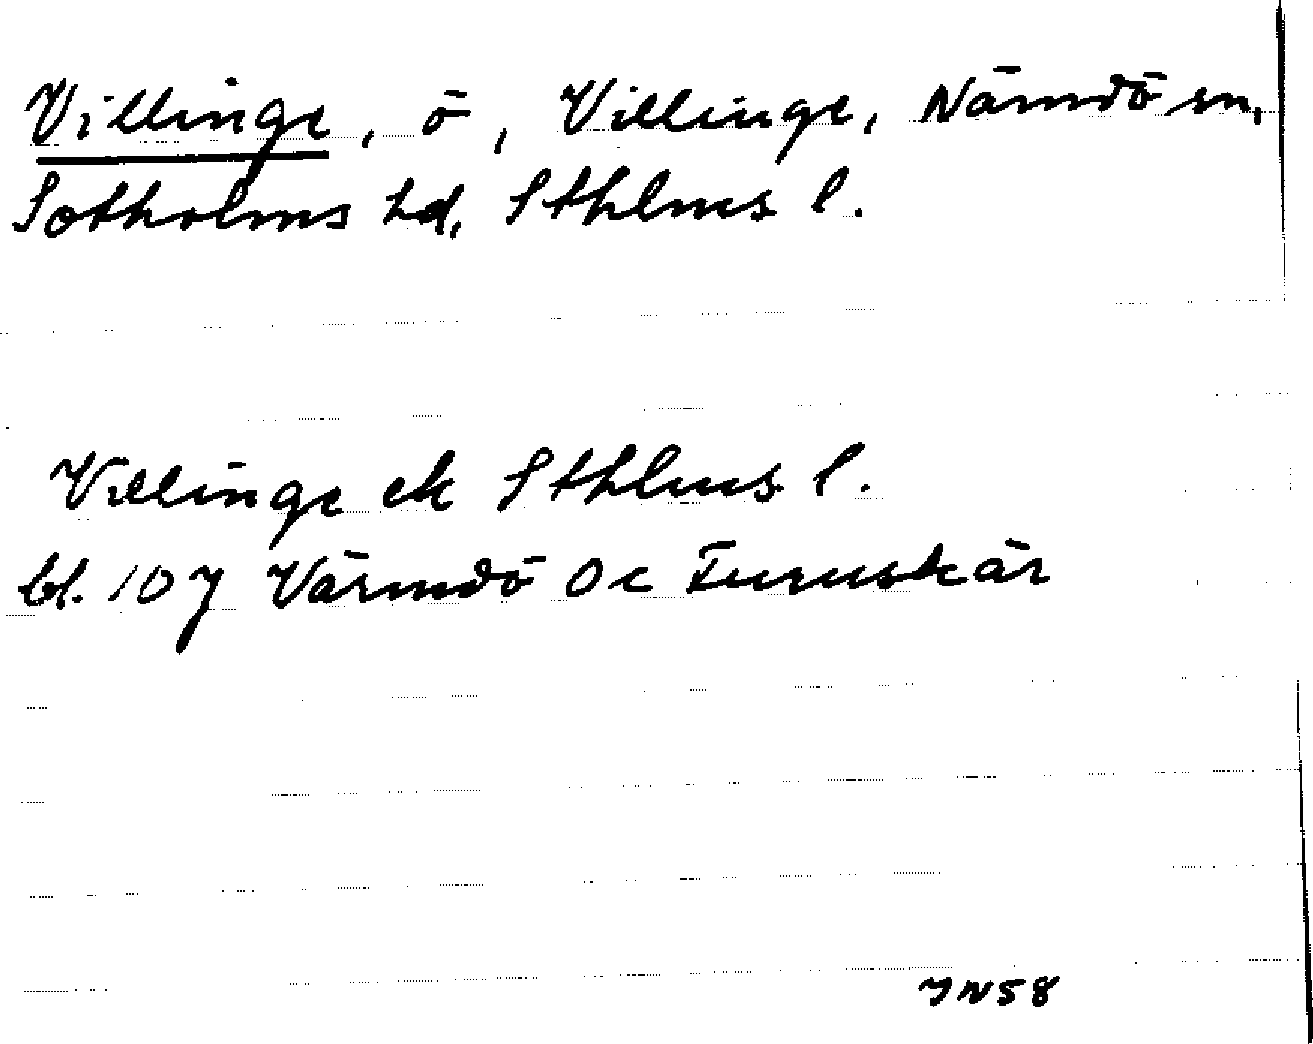 Villinge, ö, Villinge, Nämdö sn,
Sotholms hd, Sthlms l.
Villinge ek Sthlms l.
bl. 107 Värmdö Oc Furuskär
YN58